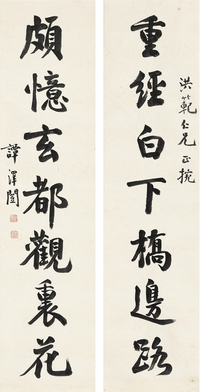 洪範仁兄正捥
重經白下橋邊路
頗憶玄都觀裏花
譚澤闓